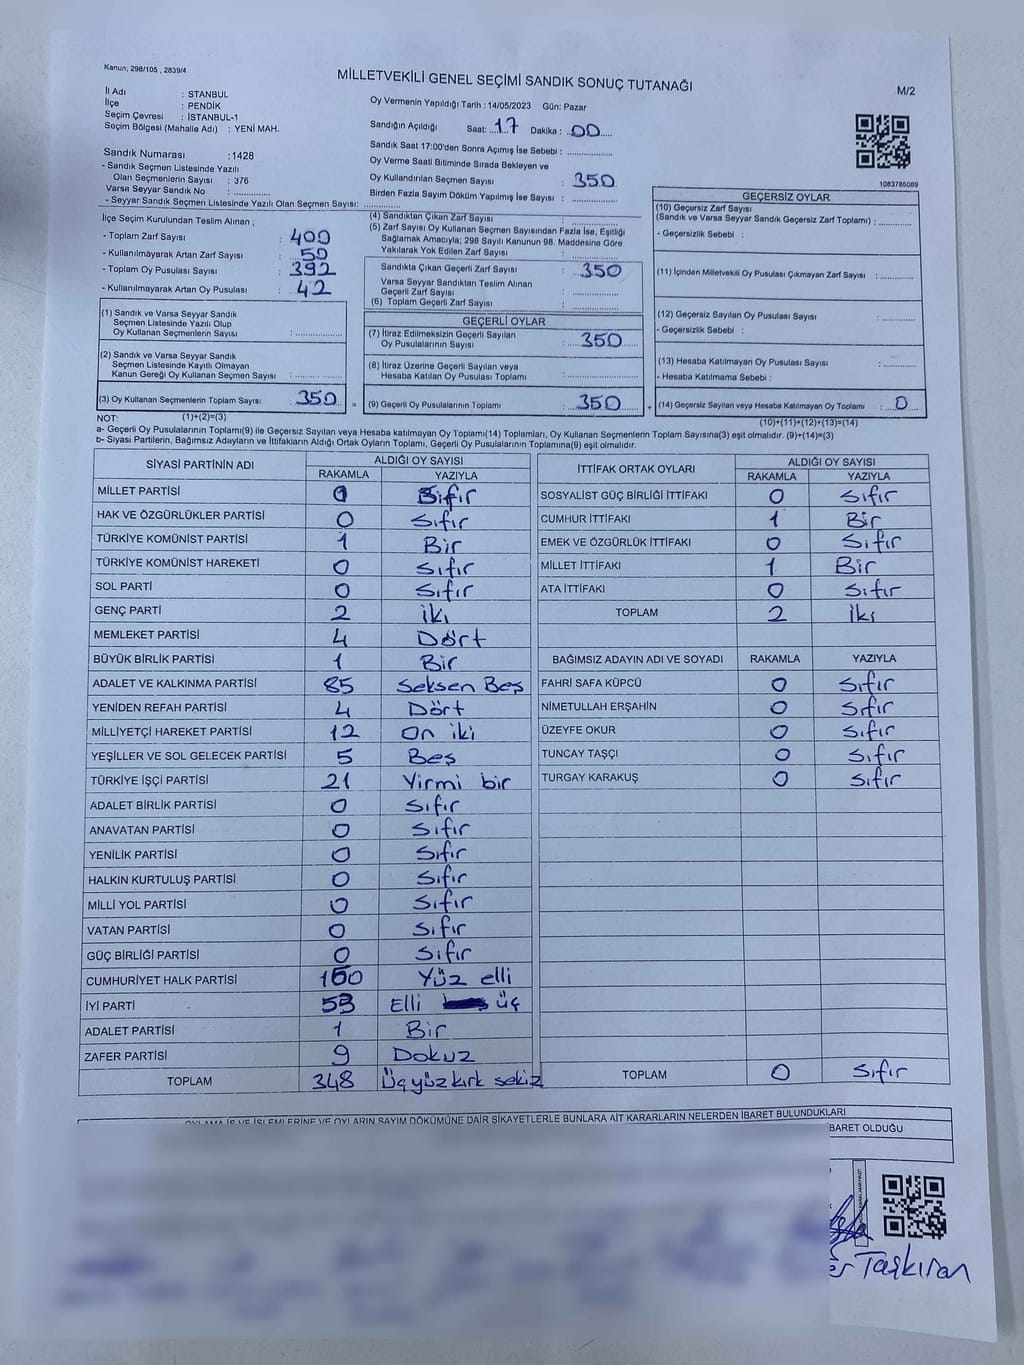 Kanun; 298/105 , 2839/4
MİLLETVEKİLİ GENEL SEÇİMİ SANDIK SONUÇ TUTANAĞI
M/2
İl Adı : STANBUL
İlçe : PENDİK
Seçim Çevresi : İSTANBUL-1
Seçim Bölgesi (Mahalle Adı) : YENİ MAH.
Sandık Numarası :1428
- Sandık Seçmen Listesinde Yazılı
Olan Seçmenlerin Sayısı : 376
Varsa Seyyar Sandık No :
- Seyyar Sandık Seçmen Listesinde Yazılı Olan Seçmen Sayısı:
Oy Vermenin Yapıldığı Tarih : 14/05/2023 Gün: Pazar
Sandığın Açıldığı Saat: 17 Dakika : 00
Sandık Saat 17:00'den Sonra Açımış İse Sebebi :
Oy Verme Saati Bitiminde Sırada Bekleyen ve
Oy Kullandırılan Seçmen Sayısı : 350
Birden Fazla Sayım Döküm Yapılmış İse Sayısı :
1083785089
İlçe Seçim Kurulundan Teslim Alınan ;
- Toplam Zarf Sayısı : 400
- Kullanılmayarak Artan Zarf Sayısı : 50
- Toplam Oy Pusulası Sayısı : 392
- Kullanılmayarak Artan Oy Pusulası : 42
(1) Sandık ve Varsa Seyyar Sandık
Seçmen Listesinde Yazılı Olup
Oy Kullanan Seçmenlerin Sayısı :
(2) Sandık ve Varsa Seyyar Sandık
Seçmen Listesinde Kayıtlı Olmayan
Kanun Gereği Oy Kullanan Seçmen Sayısı :
(3) Oy Kullanan Seçmenlerin Toplam Sayısı : 350
(1)+(2)=(3)
(4) Sandıktan Çıkan Zarf Sayısı :
(5) Zarf Sayısı Oy Kullanan Seçmen Sayısından Fazla İse, Eşitliği
Sağlamak Amacıyla; 298 Sayılı Kanunun 98. Maddesine Göre
Yakılarak Yok Edilen Zarf Sayısı :
Sandıkta Çıkan Geçerli Zarf Sayısı : 350
Varsa Seyyar Sandıktan Teslim Alınan
Geçerli Zarf Sayısı :
(6) Toplam Geçerli Zarf Sayısı :
GEÇERLİ OYLAR
(7) İtiraz Edilmeksizin Geçerli Sayılan
Oy Pusulalarının Sayısı : 350
(8) İtiraz Üzerine Geçerli Sayılan veya
Hesaba Katılan Oy Pusulası Toplamı :
= (9) Geçerli Oy Pusulalarının Toplamı : 350 +
GEÇERSİZ OYLAR
(10) Geçersiz Zarf Sayısı
(Sandık ve Varsa Seyyar Sandık Geçersiz Zarf Toplamı) :
- Geçersizlik Sebebi :
(11) İçinden Milletvekili Oy Pusulası Çıkmayan Zarf Sayısı :
(12) Geçersiz Sayılan Oy Pusulası Sayısı :
- Geçersizlik Sebebi :
(13) Hesaba Katılmayan Oy Pusulası Sayısı :
- Hesaba Katılmama Sebebi :
(14) Geçersiz Sayılan veya Hesaba Katılmayan Oy Toplamı : 0
(10)+(11)+(12)+(13)=(14)
NOT:
a- Geçerli Oy Pusulalarının Toplamı(9) ile Geçersiz Sayılan veya Hesaba katılmayan Oy Toplamı(14) Toplamları, Oy Kullanan Seçmenlerin Toplam Sayısına(3) eşit olmalıdır. (9)+(14)=(3)
b- Siyasi Partilerin, Bağımsız Adayların ve İttifakların Aldığı Ortak Oyların Toplamı, Geçerli Oy Pusulalarının Toplamına(9) eşit olmalıdır.
SİYASİ PARTİNİN ADI ALDIĞI OY SAYISI
RAKAMLA YAZIYLA
MİLLET PARTİSİ 0 Sıfır
HAK VE ÖZGÜRLÜKLER PARTİSİ 0 Sıfır
TÜRKİYE KOMÜNİST PARTİSİ 1 Bir
TÜRKİYE KOMÜNİST HAREKETİ 0 Sıfır
SOL PARTİ 0 Sıfır
GENÇ PARTİ 2 İki
MEMLEKET PARTİSİ 4 Dört
BÜYÜK BİRLİK PARTİSİ 1 Bir
ADALET VE KALKINMA PARTİSİ 85 Seksen Beş
YENİDEN REFAH PARTİSİ 4 Dört
MİLLİYETÇİ HAREKET PARTİSİ 12 On iki
YEŞİLLER VE SOL GELECEK PARTİSİ 5 Beş
TÜRKİYE İŞÇİ PARTİSİ 21 Yirmi bir
ADALET BİRLİK PARTİSİ 0 Sıfır
ANAVATAN PARTİSİ 0 Sıfır
YENİLİK PARTİSİ 0 Sıfır
HALKIN KURTULUŞ PARTİSİ 0 Sıfır
MİLLİ YOL PARTİSİ 0 Sıfır
VATAN PARTİSİ 0 Sıfır
GÜÇ BİRLİĞİ PARTİSİ 0 Sıfır
CUMHURİYET HALK PARTİSİ 150 Yüz elli
İYİ PARTİ 53 Elli üç
ADALET PARTİSİ 1 Bir
ZAFER PARTİSİ 9 Dokuz
TOPLAM 348 Üçyüzkırk sekiz
İTTİFAK ORTAK OYLARI ALDIĞI OY SAYISI
RAKAMLA YAZIYLA
SOSYALİST GÜÇ BİRLİĞİ İTTİFAKI 0 Sıfır
CUMHUR İTTİFAKI 1 Bir
EMEK VE ÖZGÜRLÜK İTTİFAKI 0 Sıfır
MİLLET İTTİFAKI 1 Bir
ATA İTTİFAKI 0 Sıfır
TOPLAM 2 İki
BAĞIMSIZ ADAYIN ADI VE SOYADI RAKAMLA YAZIYLA
FAHRİ SAFA KÜPCÜ 0 Sıfır
NİMETULLAH ERŞAHİN 0 Sıfır
ÜZEYFE OKUR 0 Sıfır
TUNCAY TAŞÇI 0 Sıfır
TURGAY KARAKUŞ 0 Sıfır
TOPLAM 0 Sıfır
OYLAMA İŞ VE İŞLEMLERİNE VE OYLARIN SAYIM DÖKÜMÜNE DAİR ŞİKAYETLERLE BUNLARA AİT KARARLARIN NELERDEN İBARET BULUNDUKLARI
BARET OLDUĞU
Taşkıran